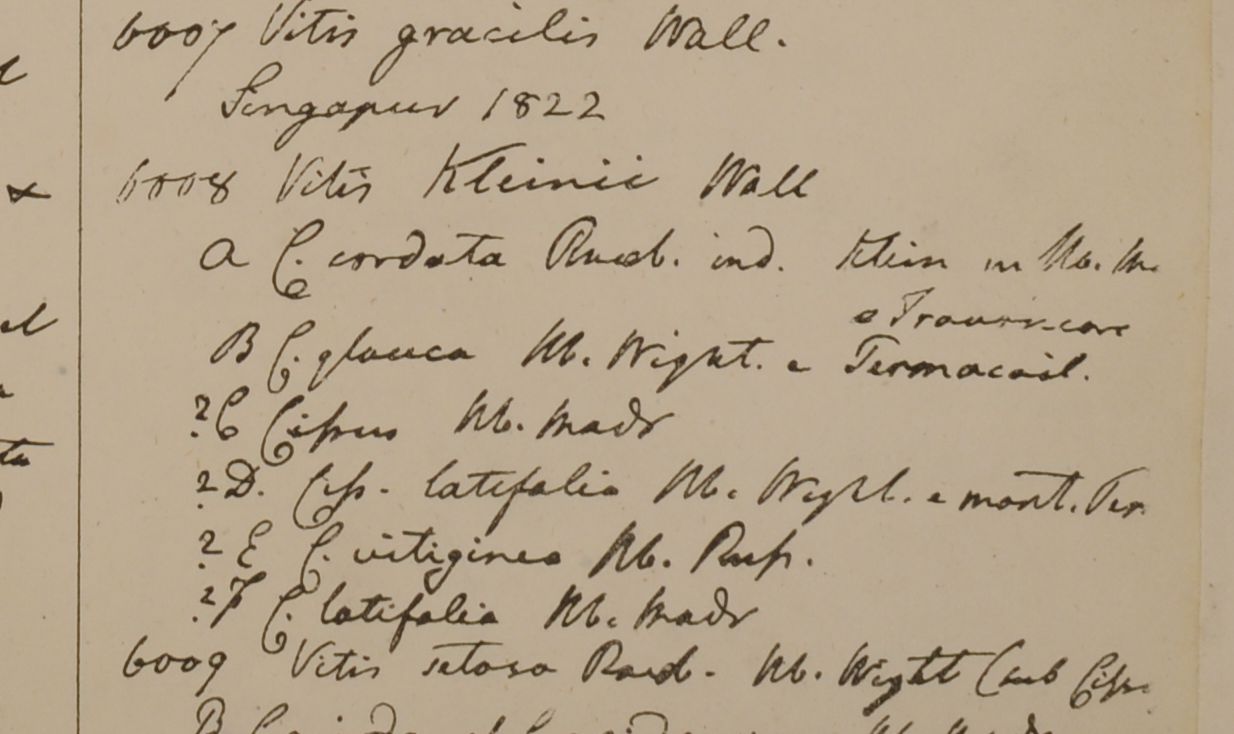 6007 Vitis gracilis Wall.
Singapur 1822
6008 Vitis Kleinii Wall
A C. cordata Roxb. ind. Klein in Hb. M.
e Travancore
B C. glauca Hb. Wight. e
?C Cissus Hb. Madr
?D. Ciss. latifolia Hb. Wight. e mont.
?E C. vitiginea Hb. Russ.
?F C. latifolia Hb. Madr
6009 Vitis setosa Roxb. Hb. Wight (sub Ciss.